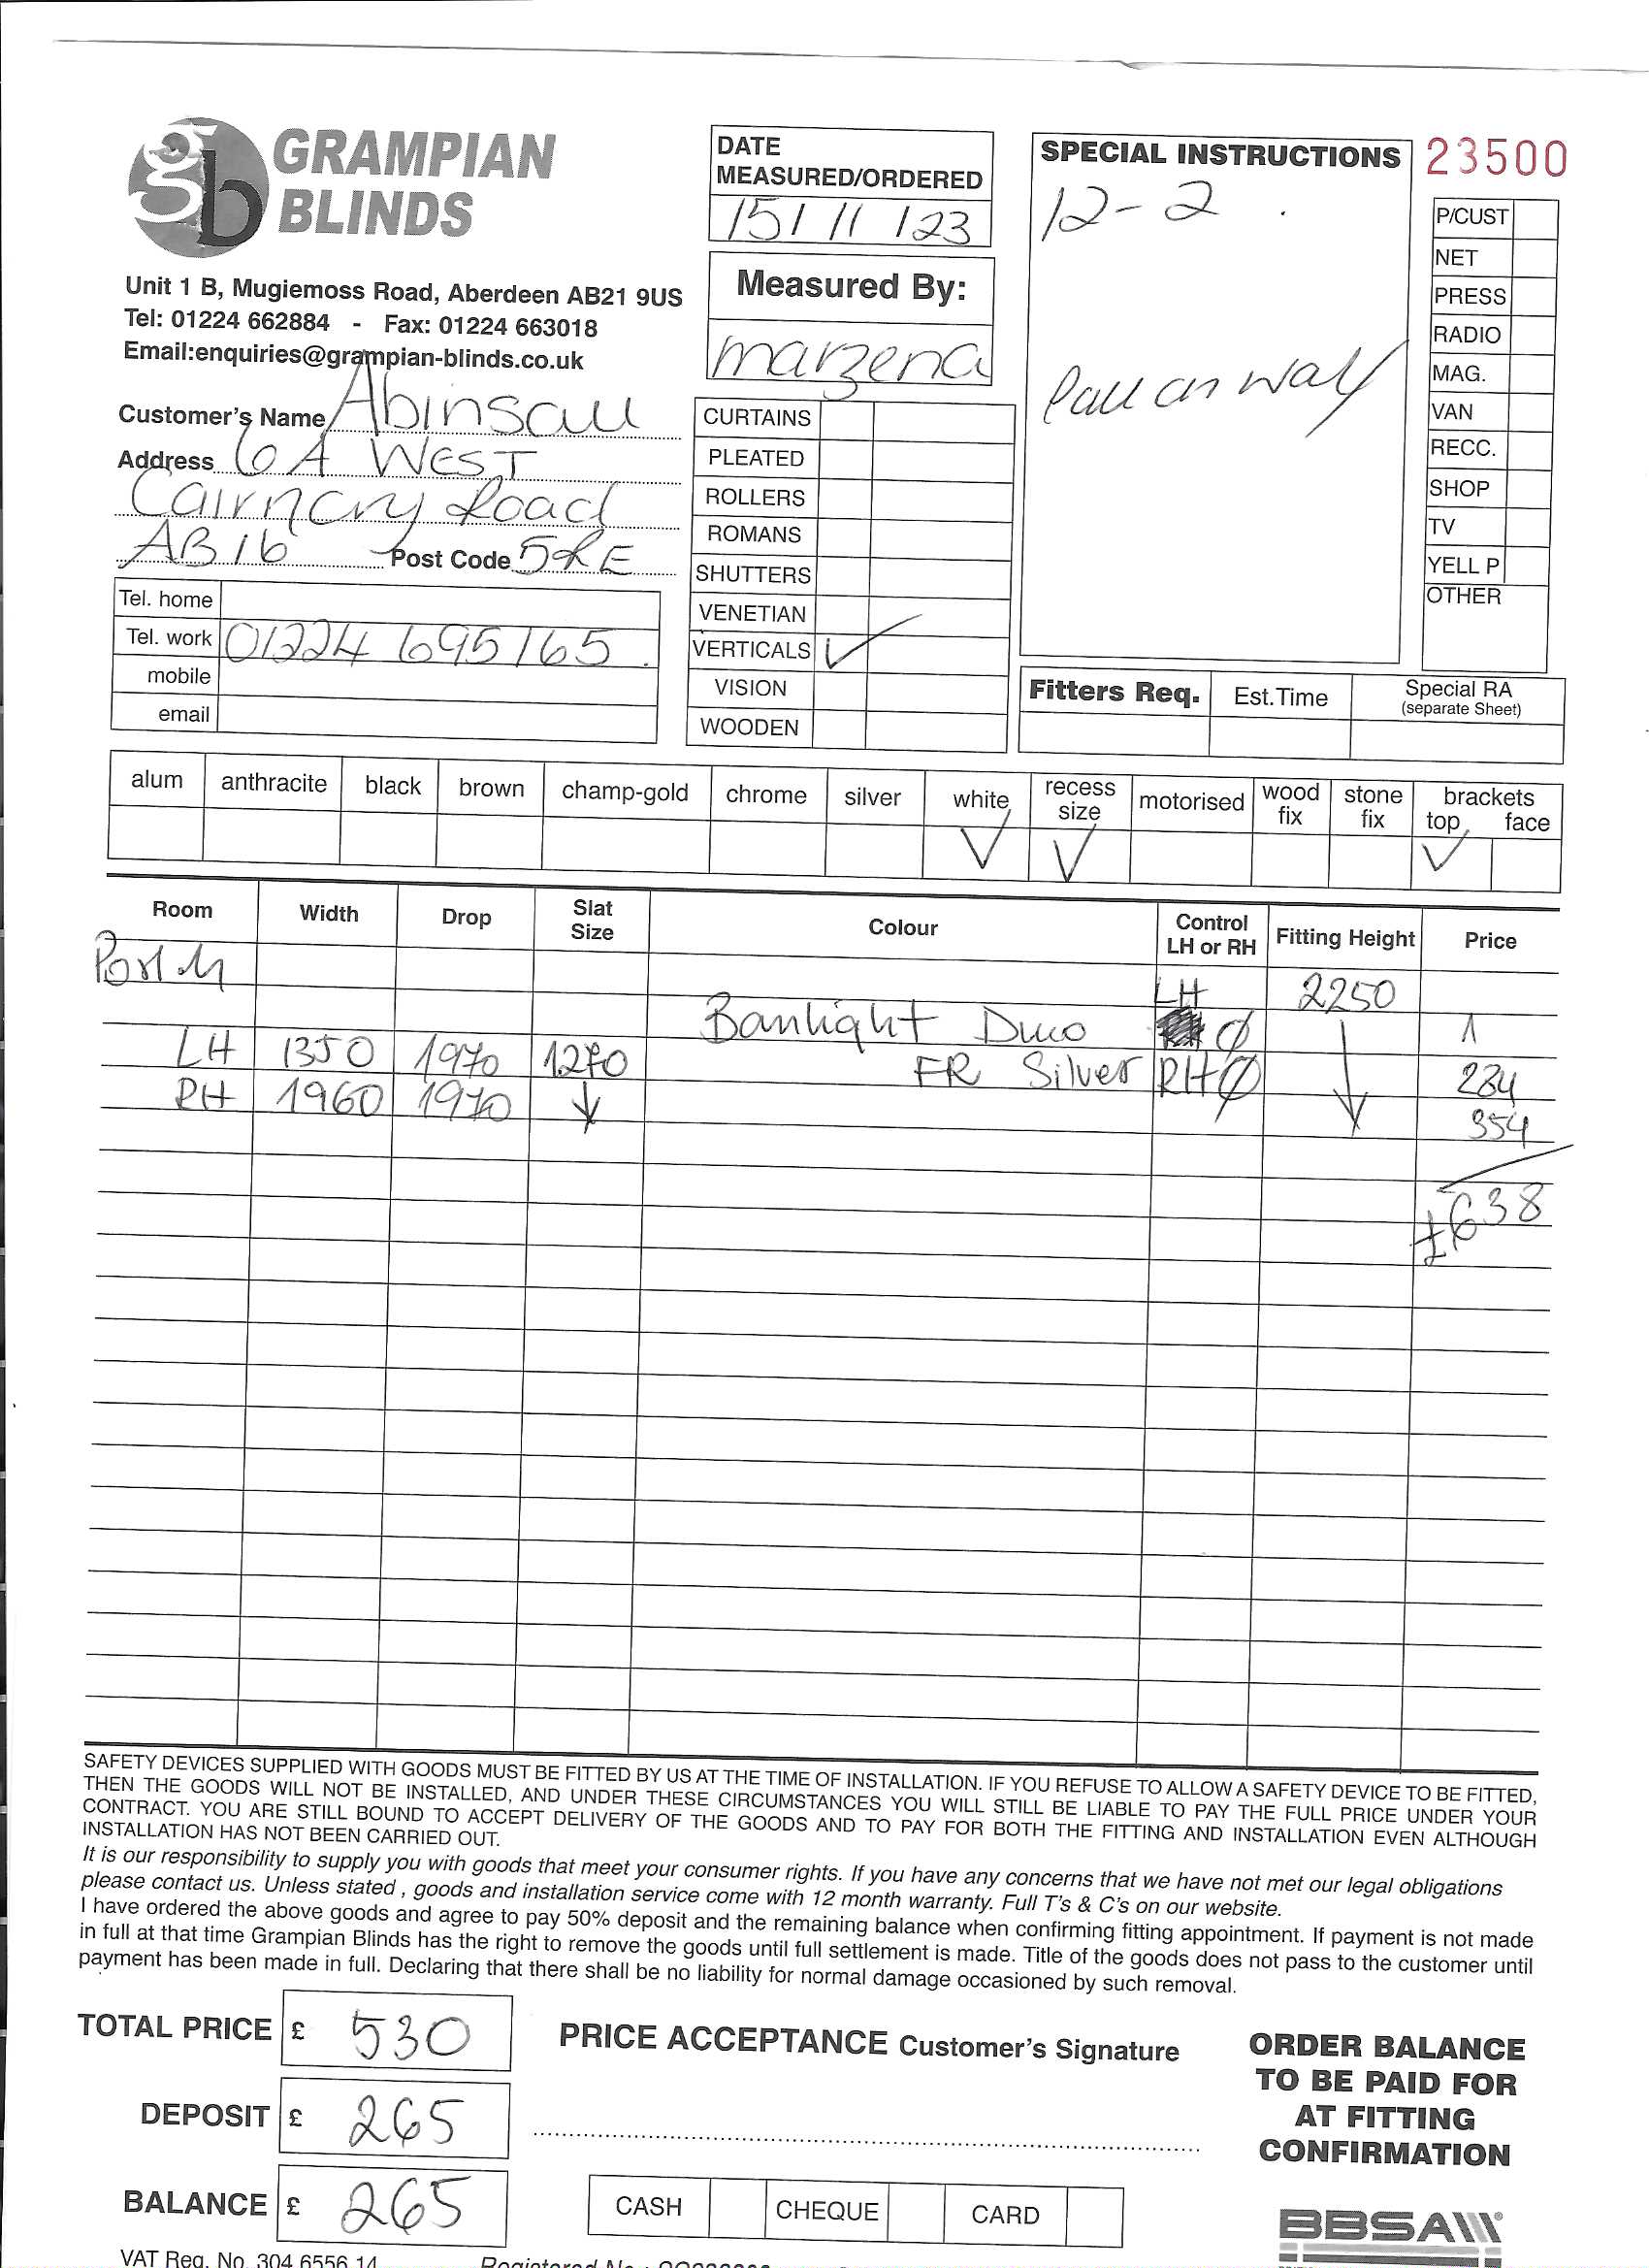 GRAMPIAN
BLINDS
Unit 1 B, Mugiemoss Road, Aberdeen AB21 9US
Tel: 01224 662884 - Fax: 01224 663018
Email:enquiries@grampian-blinds.co.uk
Customer's Name Abinsall
Address 6A West
Cairncry Road
AB16 Post Code 5RE
Tel. home
Tel. work 01224 695165
mobile
email
DATE
MEASURED/ORDERED
15/11/23
Measured By:
marzena
CURTAINS
PLEATED
ROLLERS
ROMANS
SHUTTERS
VENETIAN
VERTICALS ✓
VISION
WOODEN
SPECIAL INSTRUCTIONS
12-2
on wall
23500
P/CUST
NET
PRESS
RADIO
MAG.
VAN
RECC.
SHOP
TV
YELL P
OTHER
Fitters Req. Est.Time Special RA
(separate Sheet)
alum anthracite black brown champ-gold chrome silver white recess size motorised wood fix stone fix brackets top face
✓ ✓ ✓
Room Width Drop Slat Size Colour Control LH or RH Fitting Height Price
LH 2250
Banlight Duo
LH 1350 1970 FR Silver RH 284
RH 1960 1970 354
£638
SAFETY DEVICES SUPPLIED WITH GOODS MUST BE FITTED BY US AT THE TIME OF INSTALLATION. IF YOU REFUSE TO ALLOW A SAFETY DEVICE TO BE FITTED,
THEN THE GOODS WILL NOT BE INSTALLED, AND UNDER THESE CIRCUMSTANCES YOU WILL STILL BE LIABLE TO PAY THE FULL PRICE UNDER YOUR
CONTRACT. YOU ARE STILL BOUND TO ACCEPT DELIVERY OF THE GOODS AND TO PAY FOR BOTH THE FITTING AND INSTALLATION EVEN ALTHOUGH
INSTALLATION HAS NOT BEEN CARRIED OUT.
It is our responsibility to supply you with goods that meet your consumer rights. If you have any concerns that we have not met our legal obligations
please contact us. Unless stated , goods and installation service come with 12 month warranty. Full T's & C's on our website.
I have ordered the above goods and agree to pay 50% deposit and the remaining balance when confirming fitting appointment. If payment is not made
in full at that time Grampian Blinds has the right to remove the goods until full settlement is made. Title of the goods does not pass to the customer until
payment has been made in full. Declaring that there shall be no liability for normal damage occasioned by such removal.
TOTAL PRICE £ 530
DEPOSIT £ 265
BALANCE £ 265
PRICE ACCEPTANCE Customer's Signature
CASH CHEQUE CARD
ORDER BALANCE
TO BE PAID FOR
AT FITTING
CONFIRMATION
BBSA
VAT Reg. No. 304 6556 14